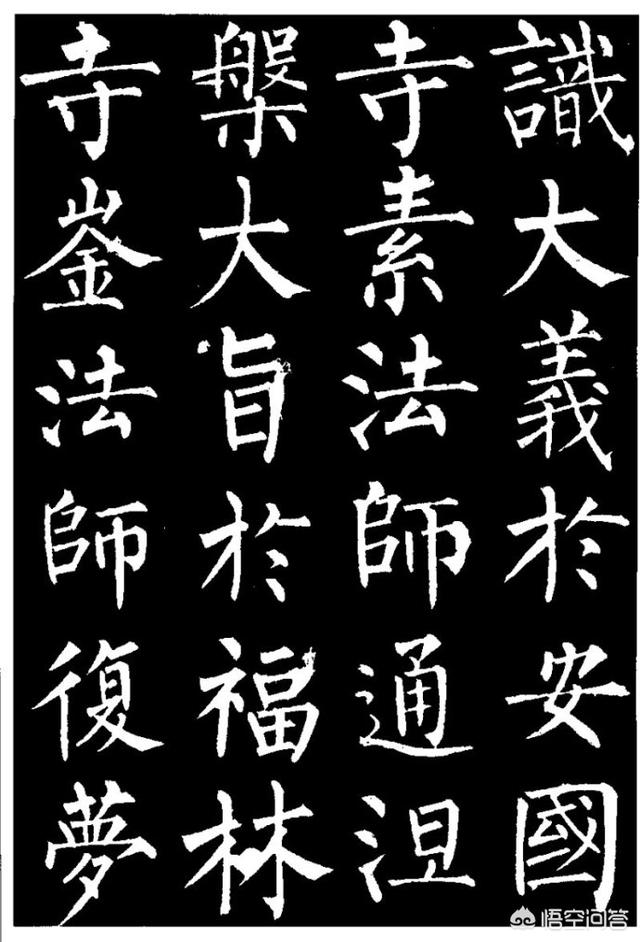 識大義於安國
寺素法師通涅
槃大旨於福林
寺崟法師復夢
悟空问答